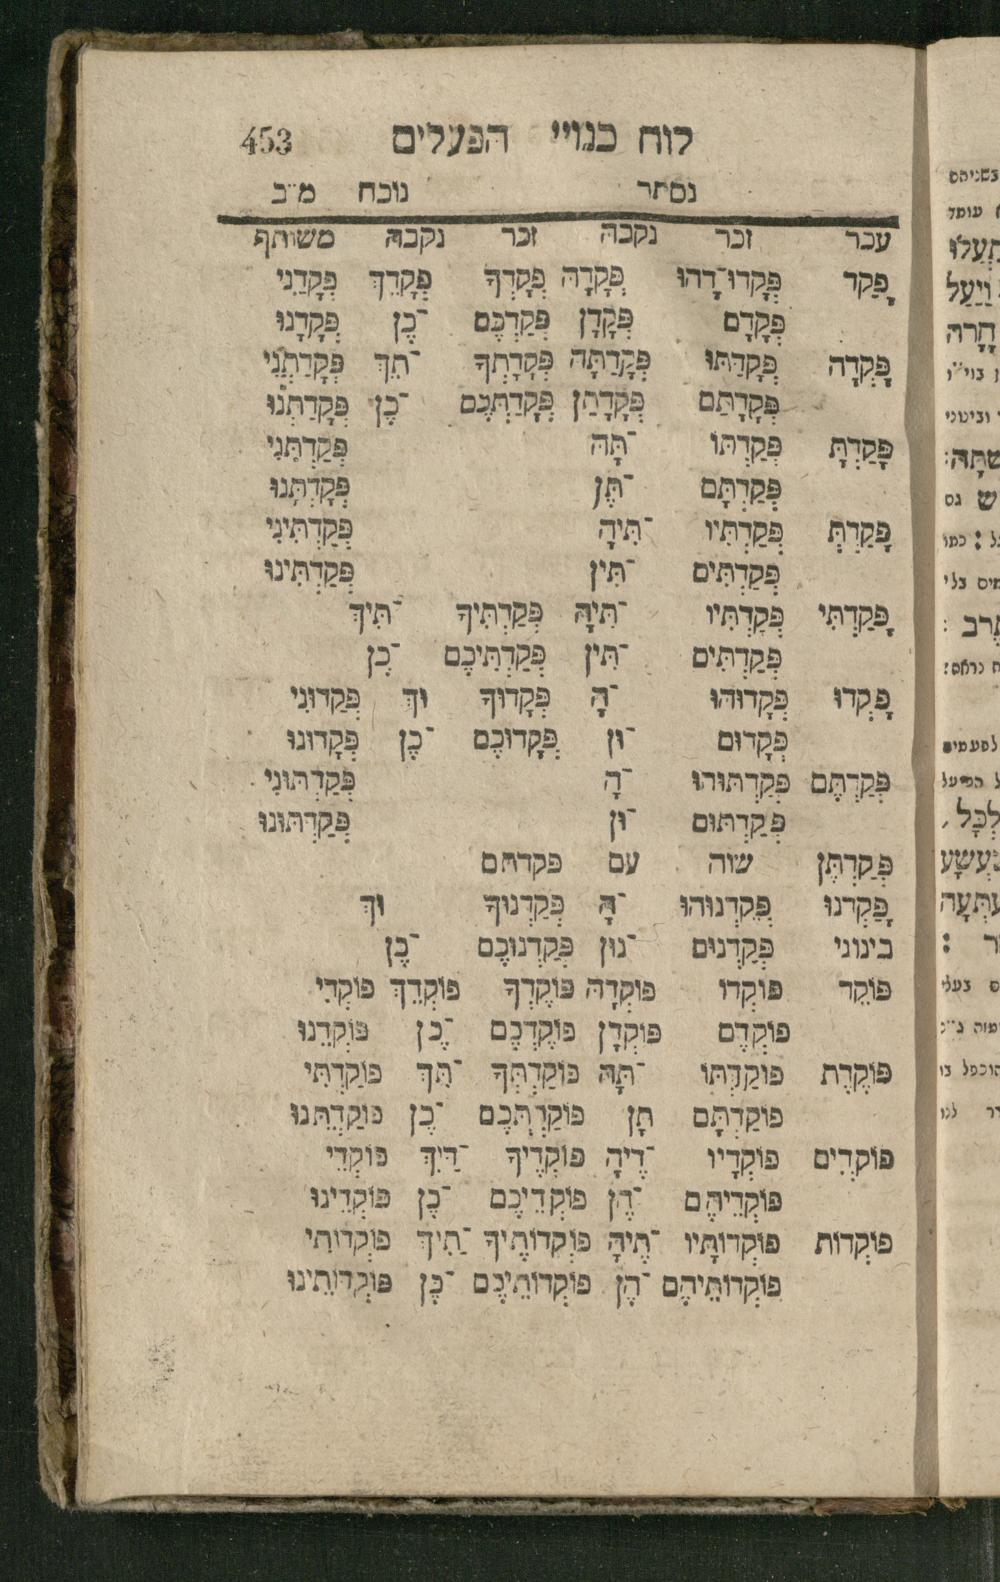 לוח כנויי הפעלים 453
נסתר נוכח מ״ב
עבר זכר נקבה זכר נקבה משותף
פָּקַד פְּקָדוֹ־דָהוּ פְּקָדָהּ פְּקָדְךָ פְּקָדֵךְ פְּקָדַנִי
פְּקָדָם פְּקָדָן פְּקָדְכֶם ־כֶן פְּקָדָנוּ
פָּקְדָה פְּקָדַתּוּ פְּקָדַתָּה פְּקָדָתְךָ ־תֵךְ פְּקָדַתְנִי
פְּקָדָתַם פְּקָדָתַן פְּקָדַתְכֶם ־כֶן פְּקָדַתְנוּ
פָּקַדְתָּ פְּקַדְתּוֹ ־תָּהּ פְּקַדְתַּנִי
פְּקַדְתָּם ־תָּן פְּקַדְתָּנוּ
פָּקַדְתְּ פְּקַדְתִּיו ־תִּיהָ פְּקַדְתִּינִי
פְּקַדְתִּים ־תִּין פְּקַדְתִּינוּ
פָּקַדְתִּי פְּקַדְתִּיו ־תִּיהָ פְּקַדְתִּיךָ ־תִּיךְ
פְּקַדְתִּים ־תִּין פְּקַדְתִּיכֶם ־כֶן
פָּקְדוּ פְּקָדוּהוּ ־הָ פְּקָדוּךָ וּךְ פְּקָדוּנִי
פְּקָדוּם ־וּן פְּקָדוּכֶם ־כֶן פְּקָדוּנוּ
פְּקַדְתֶּם פְּקַדְתּוּהוּ ־הָ פְּקַדְתּוּנִי
פְּקַדְתּוּם ־וּן פְּקַדְתּוּנוּ
פְּקַדְתֶּן שוה עם פקדתם
פָּקַדְנוּ פְּקַדְנוּהוּ ־הָ פְּקַדְנוּךָ וּךְ
בינוני פְּקַדְנוּם ־נוּן פְּקַדְנוּכֶם ־כֶן
פּוֹקֵד פּוֹקְדוֹ פּוֹקְדָהּ פּוֹקֶדְךָ פּוֹקְדֵךְ פּוֹקְדִי
פּוֹקְדָם פּוֹקְדָן פּוֹקֶדְכֶם ־כֶן פּוֹקְדֵנוּ
פּוֹקֶדֶת פּוֹקַדְתּוֹ ־תָּהּ פּוֹקַדְתְּךָ ־תֵּךְ פּוֹקַדְתִּי
פּוֹקַדְתָּם תָּן פּוֹקַדְתְּכֶם ־כֶן פּוֹקַדְתֵּנוּ
פּוֹקְדִים פּוֹקְדָיו ־דֶיהָ פּוֹקְדֶיךָ ־דַיִךְ פּוֹקְדַי
פּוֹקְדֵיהֶם ־הֶן פּוֹקְדֵיכֶם ־כֶן פּוֹקְדֵינוּ
פּוֹקְדוֹת פּוֹקְדוֹתָיו ־תֶיהָ פּוֹקְדוֹתֶיךָ ־תַיִךְ פּוֹקְדוֹתַי
פּוֹקְדוֹתֵיהֶם ־הֶן פּוֹקְדוֹתֵיכֶם ־כֶן פּוֹקְדוֹתֵינוּ